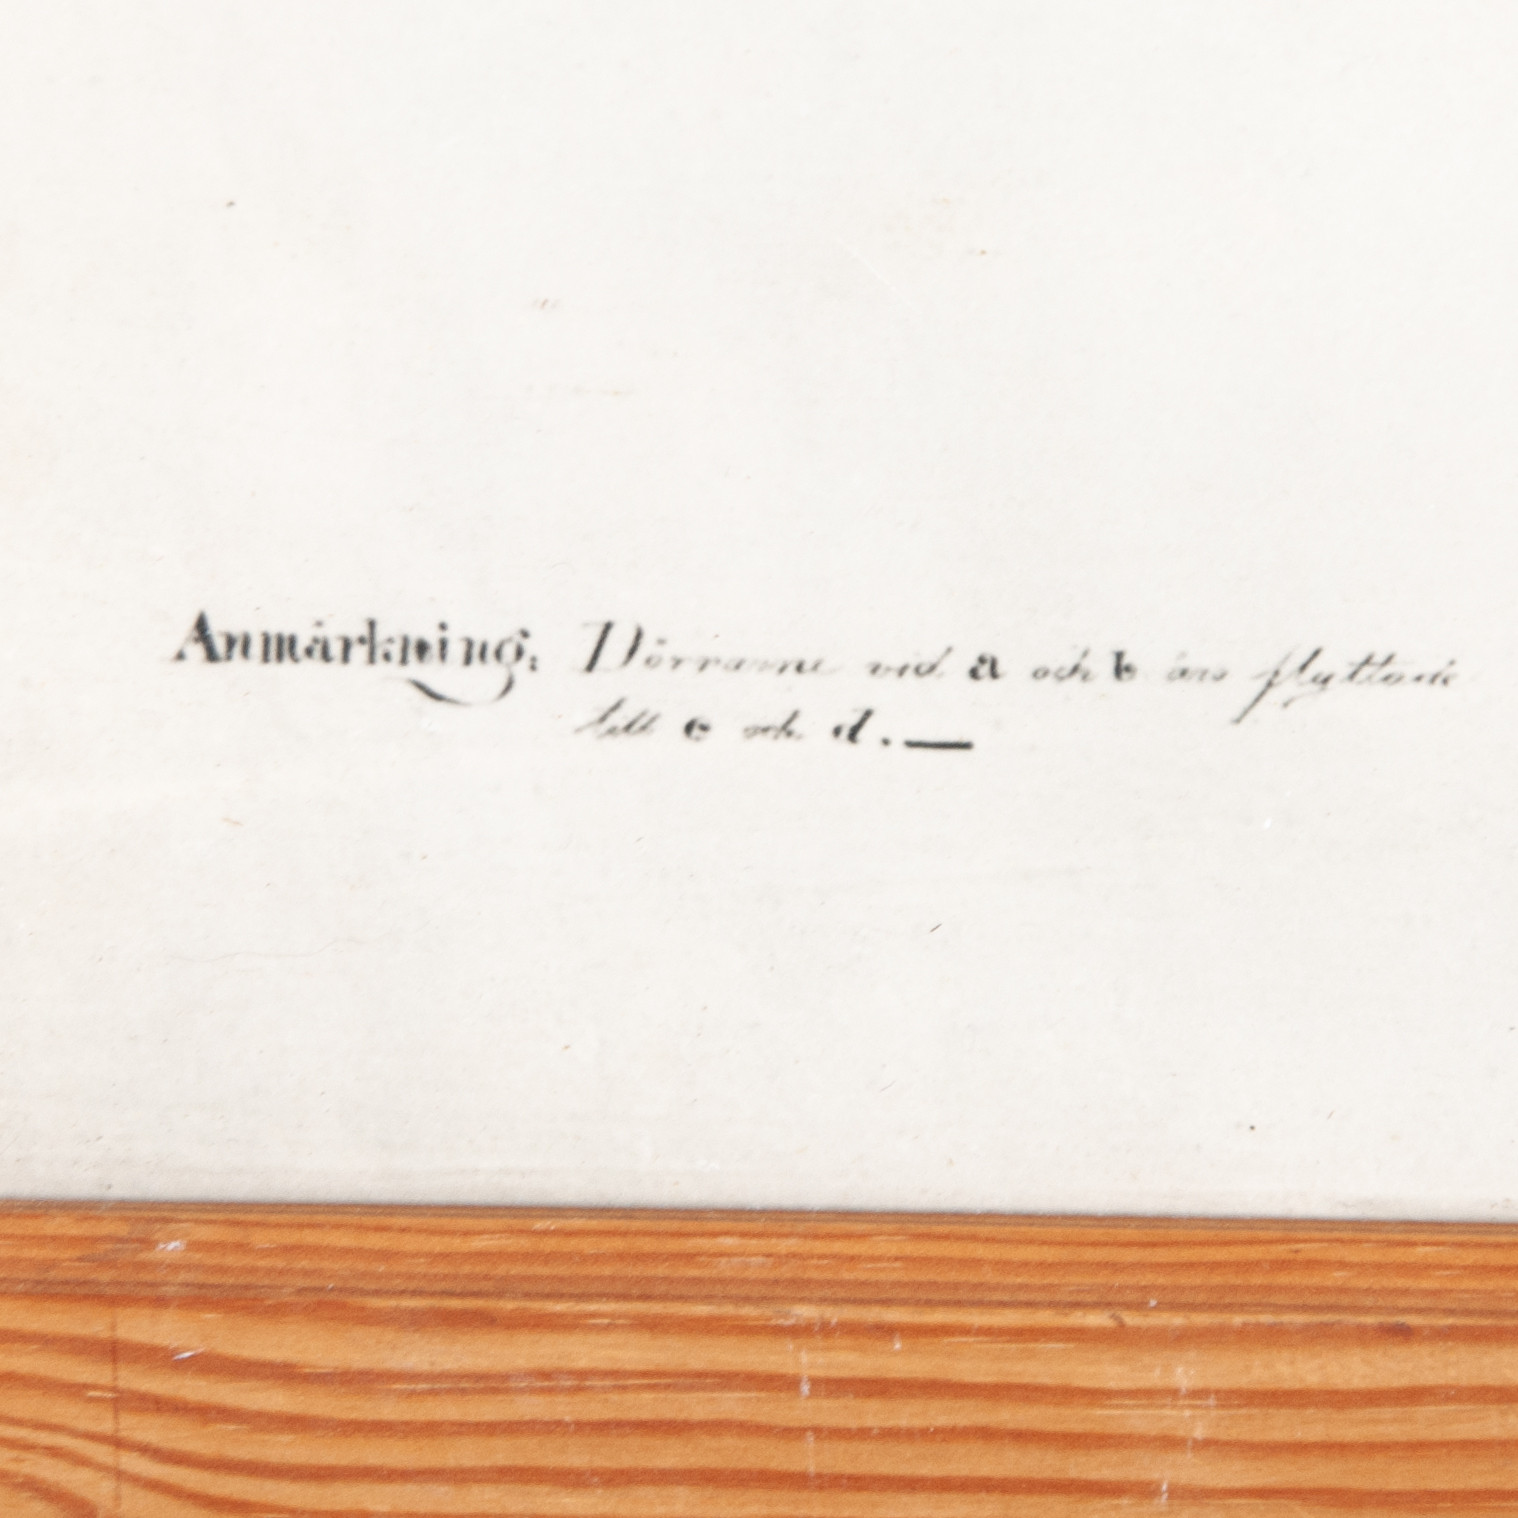 Anmärkning: Dörrarne vid a och b äro flyttade
till c och d. —